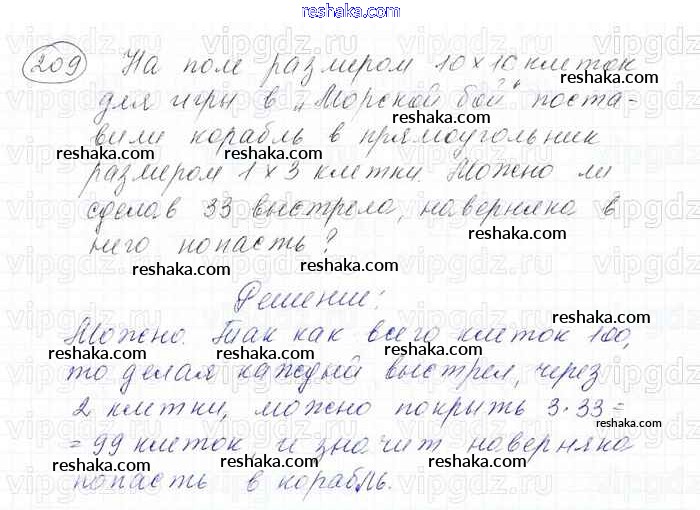 reshaka.com
209 На поле размером 10×10 клеток
для игры в „Морской бой" поста-
вили корабль в прямоугольник
reshaka.com reshaka.com
размером 1×3 клетки. Можно ли
сделав 33 выстрела, наверняка в
него попасть?
reshaka.com reshaka.com
Решение:
reshaka.com
Можно. Так как всего клеток 100,
reshaka.com reshaka.com
то делая каждый выстрел, через
2 клетки, можно покрыть 3·33=
reshaka.com
= 99 клеток, и значит наверняка
reshaka.com reshaka.com
попасть в корабль.
reshaka.com